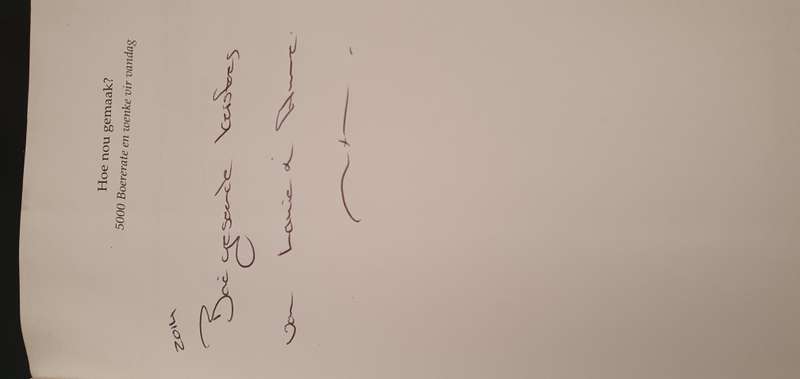 Hoe nou gemaak?
5000 Boererate en wenke vir vandag
2014
Geseënde Kersfees
van &